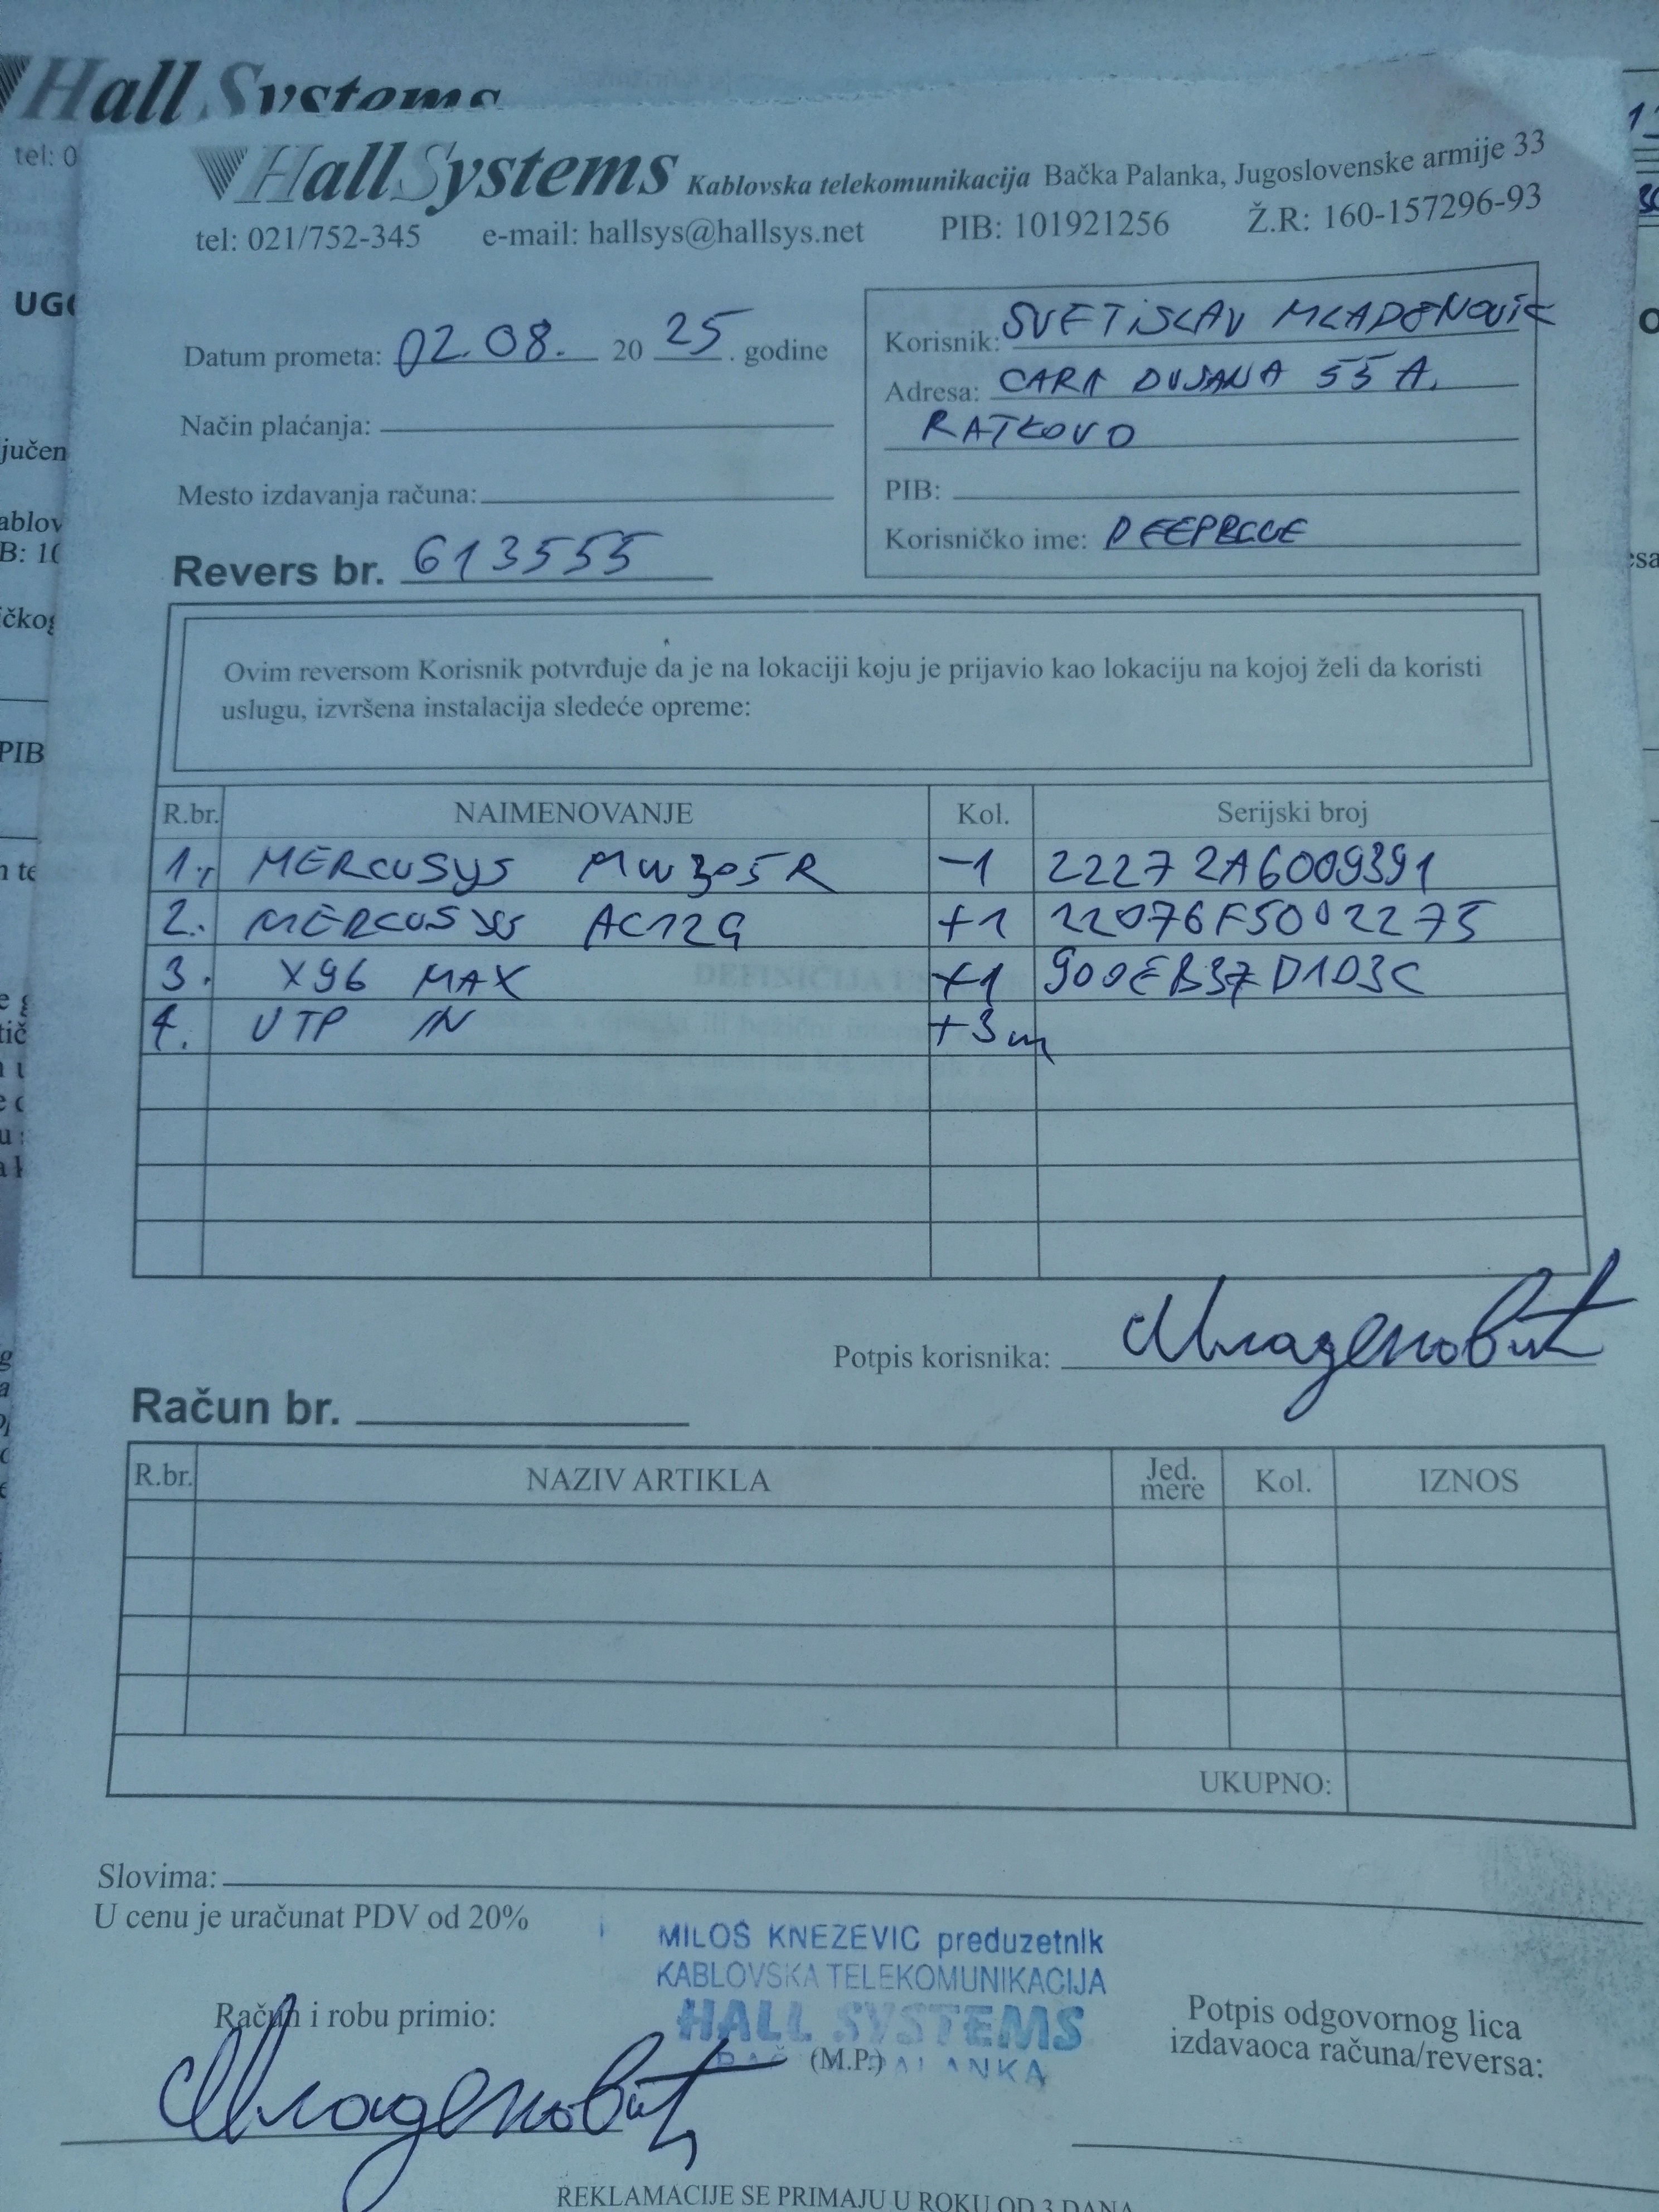 Hall Systems
tel: 0
HallSystems Kablovska telekomunikacija Bačka Palanka, Jugoslovenske armije 33
tel: 021/752-345 e-mail: hallsys@hallsys.net PIB: 101921256 Ž.R: 160-157296-93
Datum prometa: 02.08. 20 25. godine
Način plaćanja:
Mesto izdavanja računa:
Revers br. 613555
Korisnik: SVETISLAV MLADENOVIĆ
Adresa: CARA DUŠANA 55 A.
RATKOVO
PIB:
Korisničko ime: DEEPBLUE
Ovim reversom Korisnik potvrđuje da je na lokaciji koju je prijavio kao lokaciju na kojoj želi da koristi
uslugu, izvršena instalacija sledeće opreme:
R.br. NAIMENOVANJE Kol. Serijski broj
1. MERCUSYS MW305R -1 22272A6009391
2. MERCUSYS AC12G +1 22076F5002275
3. X96 MAX +1 900EB37D1D3C
4. UTP IN +3m
Potpis korisnika: Младеновић
Račun br.
R.br. NAZIV ARTIKLA Jed. mere Kol. IZNOS
UKUPNO:
Slovima:
U cenu je uračunat PDV od 20%
MILOŠ KNEZEVIC preduzetnik
KABLOVSKA TELEKOMUNIKACIJA
HALL SYSTEMS
(M.P.)
Račun i robu primio:
Младеновић
Potpis odgovornog lica
izdavaoca računa/reversa:
REKLAMACIJE SE PRIMAJU U ROKU OD 3 DANA